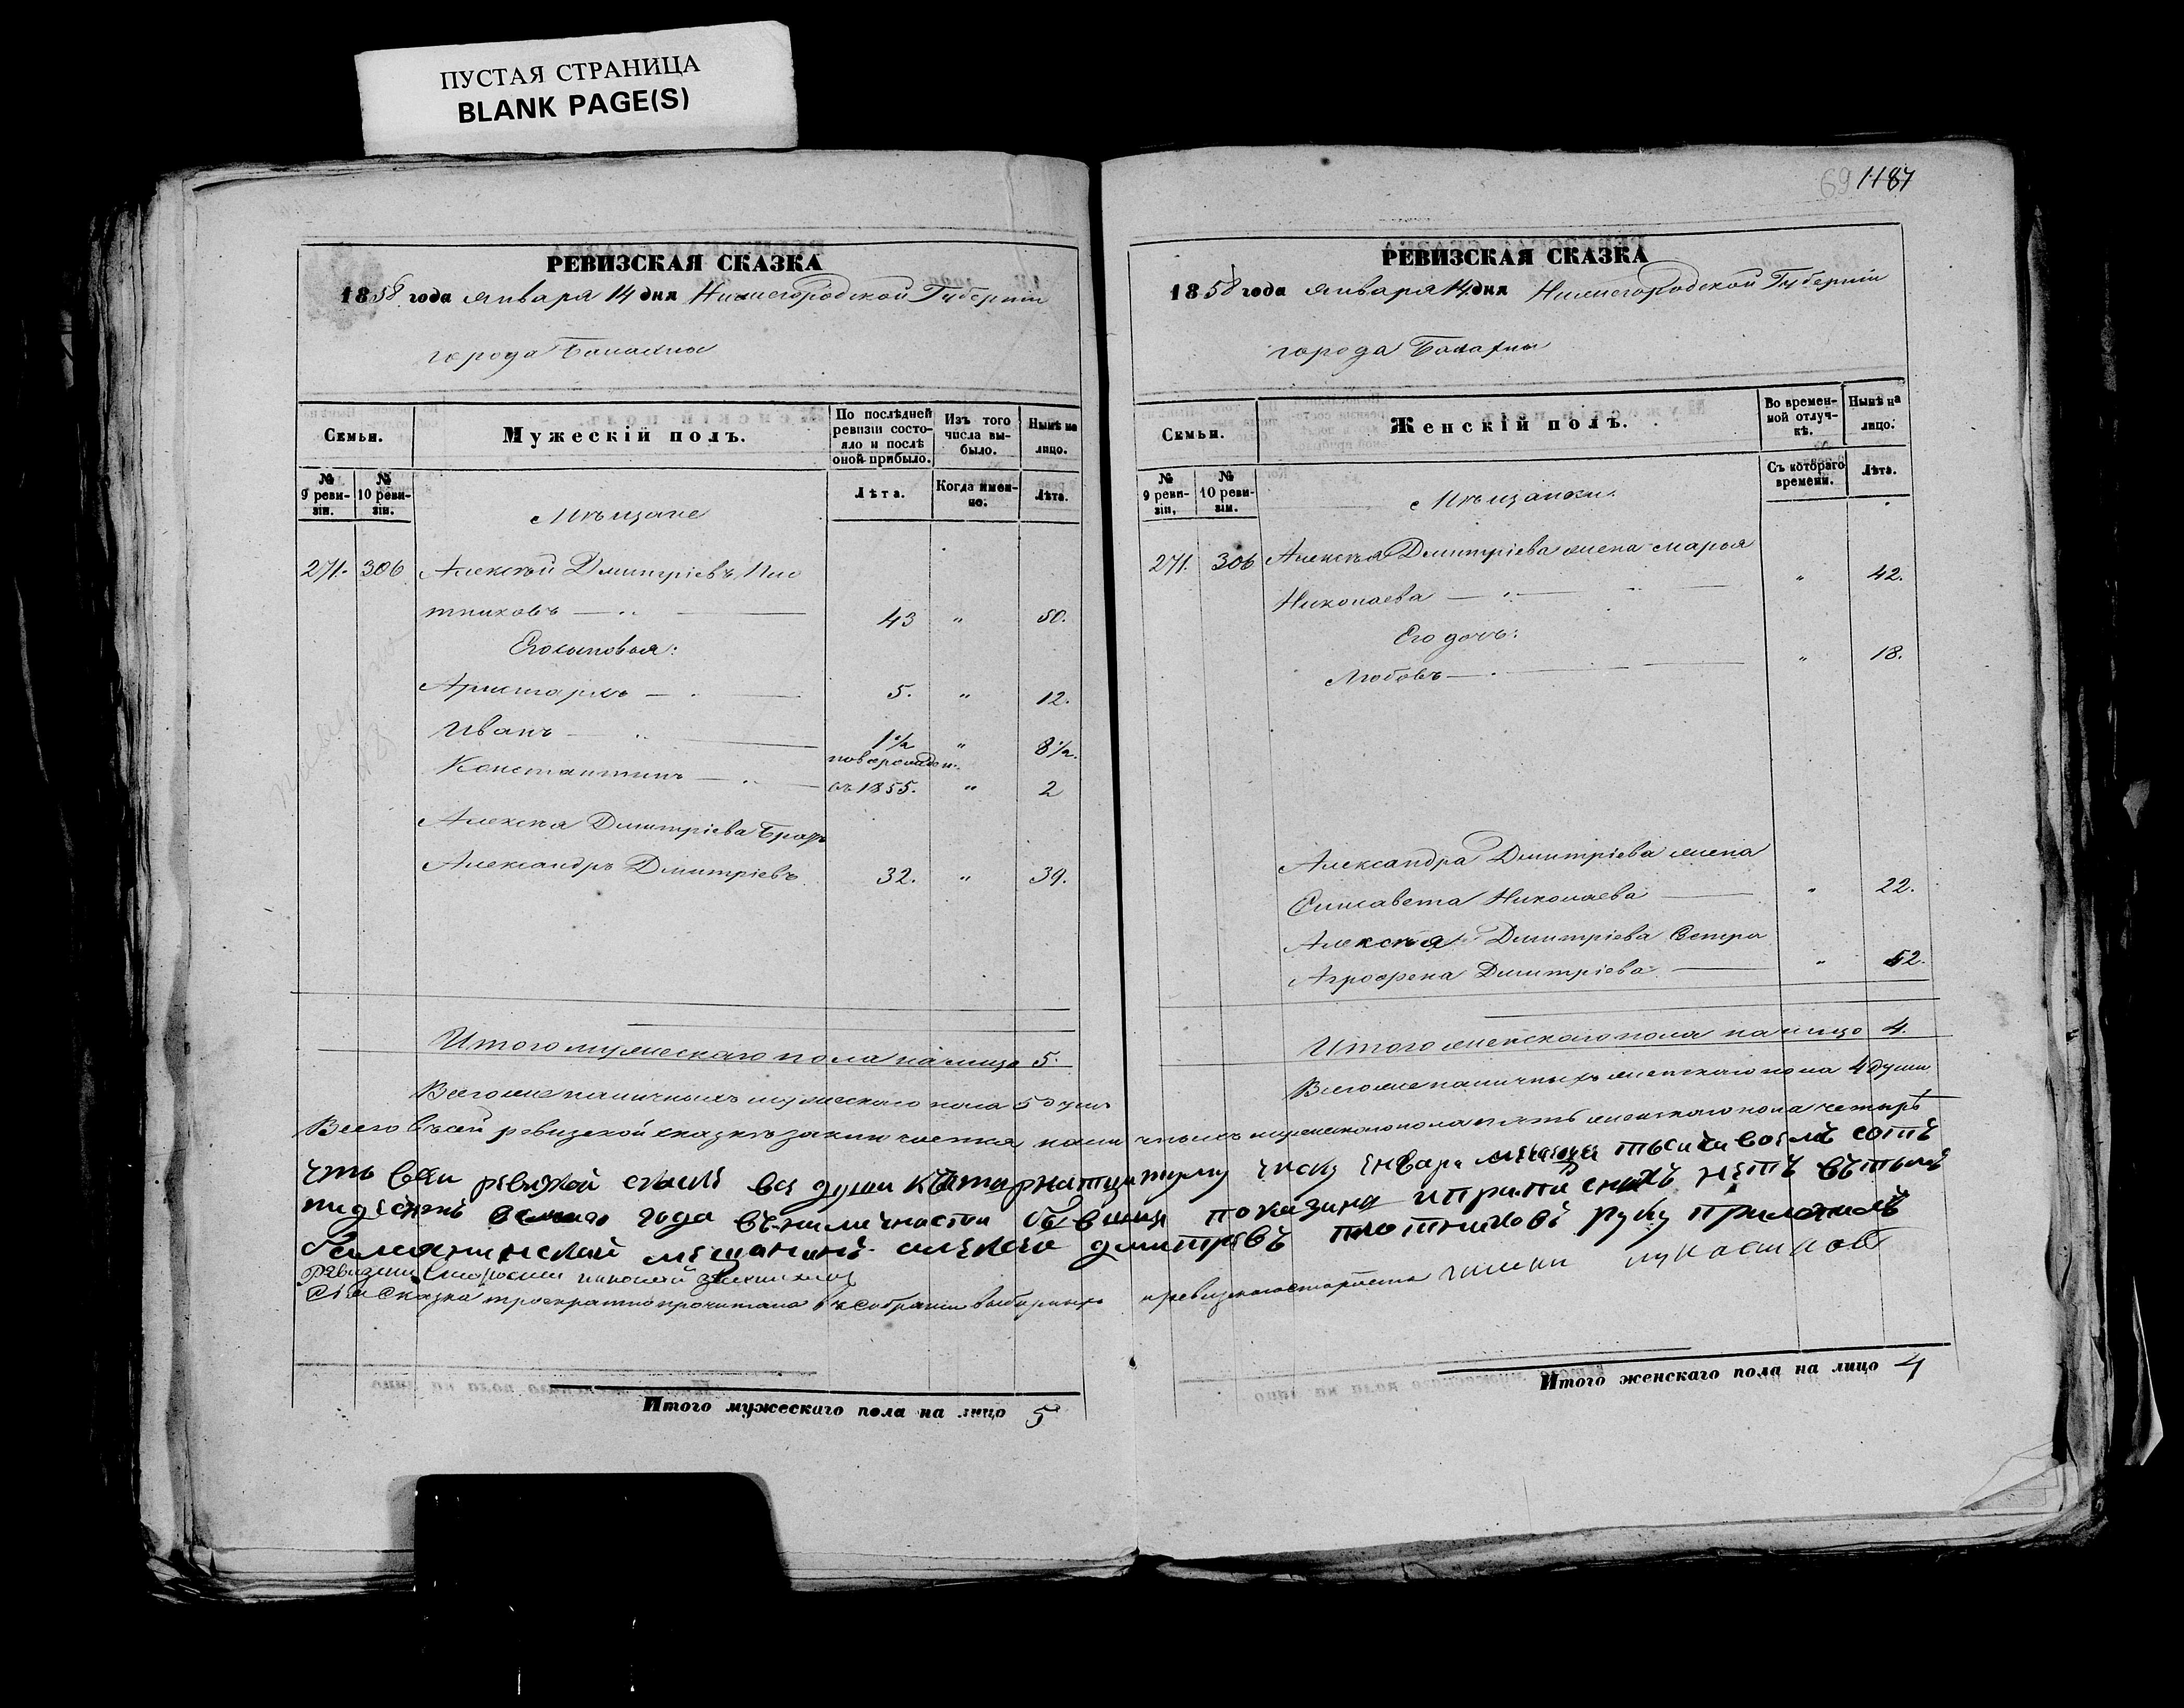 ПУСТАЯ СТРАНИЦА
BLANK PAGE(S)
РЕВИЗСКАЯ СКАЗКА
1858 года января 14 дня Нижегородской Губерніи
города Балахны
Семьи.
Мужескій полъ.
По послѣдней ревизіи состояло и послѣ оной прибыло.
Изъ того числа выбыло.
Нынѣ на лицо.
№ 9 ревизіи.
№ 10 ревизіи.
Лѣта.
Когда именно.
Лѣта.
Мѣщане
271. 306 Алексѣй Дмитріевъ Пло
тниковъ 43 " 50.
Его сыновья:
Аристархъ 5. " 12.
Иванъ 1½ " 8½.
новорожден.
Константинъ въ 1855. " 2
Алексѣя Дмитріева Братъ
Александръ Дмитріевъ 32. " 39.
Итого мужескаго пола на лицо 5.
Всего же наличныхъ мужескаго пола 5 душъ
69 1187
РЕВИЗСКАЯ СКАЗКА
1858 года января 14 дня Нижегородской Губерніи
города Балахны
Семьи.
Женскій полъ.
Во временной отлучкѣ.
Нынѣ на лицо.
№ 9 ревизіи.
№ 10 ревизіи.
Съ котораго времени.
Лѣта.
Мѣщанки.
271. 306 Алексѣя Дмитріева жена Марья
Николаева " 42.
Его дочь:
Любовь " 18.
Александра Дмитріева жена
Елисавета Николаева " 22.
Алексѣя Дмитріева Сестра
Агрофена Дмитріева " 52.
Итого женскаго пола на лицо 4.
Всего же наличныхъ женскаго пола 4 души
Всего въ сей ревизской сказкѣ заключается наличныхъ мужескаго пола пять женскаго пола четыре
что всеи ревизкой скаске все души числу енваря месяца тысеча восемъ сотъ
года въ наличности показина и прапи сныхъ нетъ вътомъ
мещанинъ алексей дмитревъ плотниковъ руку приложилъ
Ревизски Николай
Сія Сказка троекратно прочитана въ Собраніи выборныхъ и ревизскаго старосты
Итого мужескаго пола на лицо 5
Итого женскаго пола на лицо 4